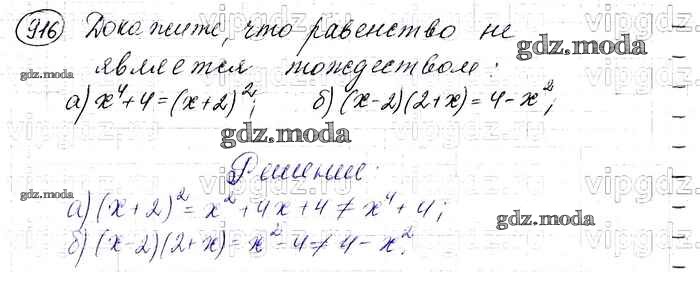 916 Докажите, что равенство не
является тождеством:
а) x⁴+4=(x+2)²; б) (x-2)(2+x)=4-x²;
Решение:
а) (x+2)²=x²+4x+4≠x⁴+4;
б) (x-2)(2+x)=x²-4≠4-x².
gdz.moda
gdz.moda
gdz.moda
gdz.moda